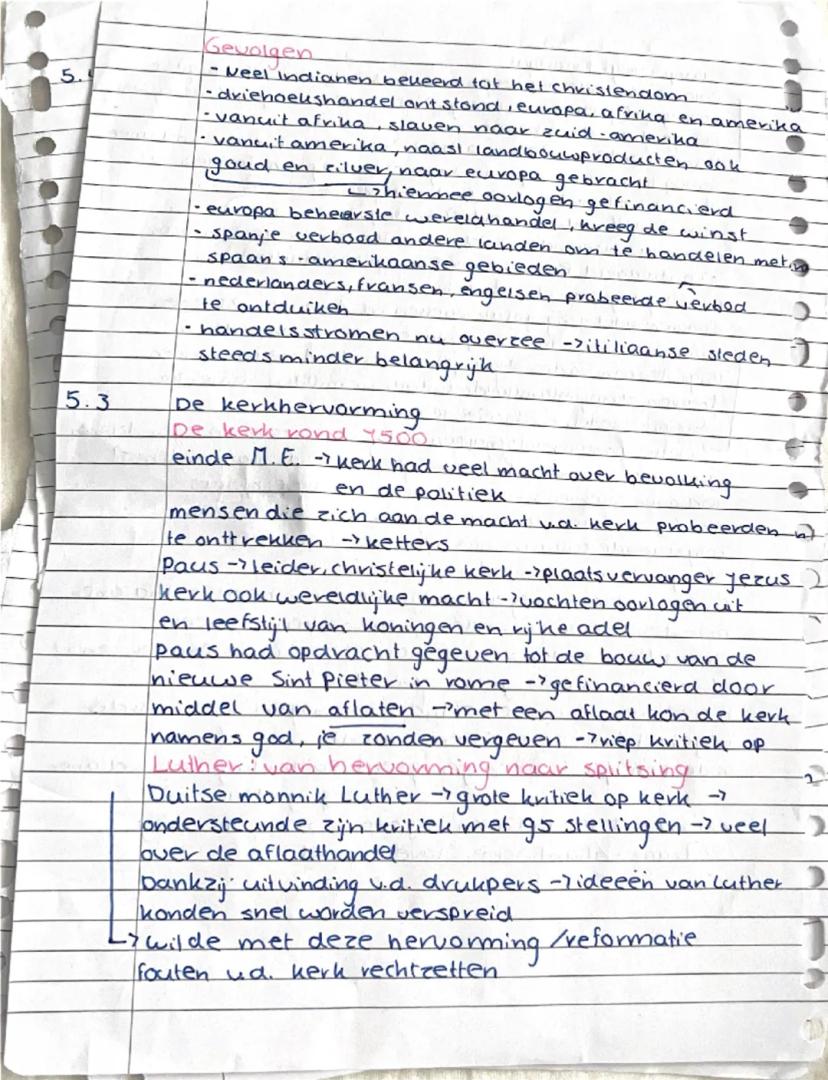 Gevolgen
5.
- veel indianen bekeerd tot het christendom
- driehoekshandel ontstond, europa, afrika en amerika
- vanuit afrika, slaven naar zuid-amerika
- vanuit amerika, naast landbouwproducten ook
goud en zilver, naar europa gebracht
↳ hiermee oorlogen gefinancierd
- europa beheerste wereldhandel, kreeg de winst
- spanje verbood andere landen om te handelen met
spaans-amerikaanse gebieden
- nederlanders, fransen, engelsen probeerde verbod
te ontduiken
- handelsstromen nu overzee → itiliaanse steden
steeds minder belangrijk
5.3 De kerkhervorming
De kerk rond 1500
einde M.E. → kerk had veel macht over bevolking
en de politiek
mensen die zich aan de macht v.d. kerk probeerden
te onttrekken → ketters
Paus → leider, christelijke kerk → plaatsvervanger jezus
kerk ook wereldlijke macht → vochten oorlogen uit
en leefstijl van koningen en rijke adel
paus had opdracht gegeven tot de bouw van de
nieuwe Sint Pieter in rome → gefinancierd door
middel van aflaten → met een aflaat kon de kerk
namens god, je zonden vergeven → riep kritiek op
Luther: van hervorming naar splitsing
Duitse monnik Luther → grote kritiek op kerk →
ondersteunde zijn kritiek met 95 stellingen → veel
over de aflaathandel
Dankzij uitvinding v.d. drukpers → ideeën van Luther
konden snel worden verspreid
↳ wilde met deze hervorming /reformatie
fouten v.d. kerk rechtzetten